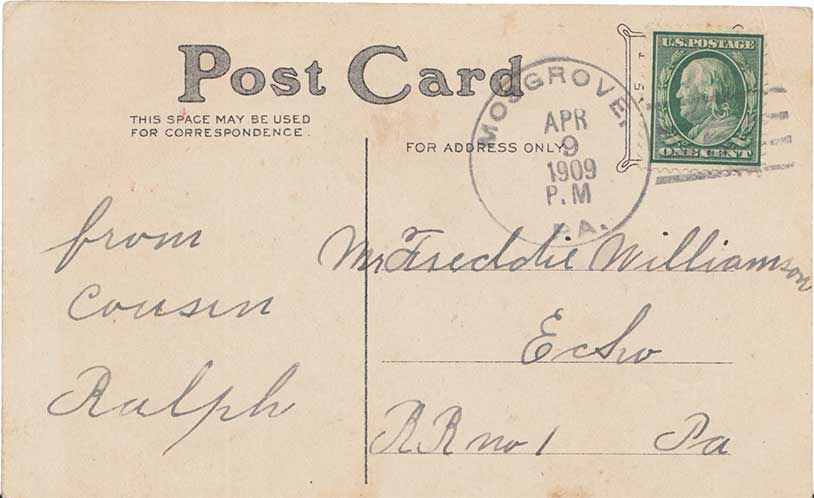 Post Card
THIS SPACE MAY BE USED
FOR CORRESPONDENCE.
FOR ADDRESS ONLY
MOSGROVE,
APR
9
1909
P.M
PA.
U.S. POSTAGE
ONE CENT
from
Cousin
Ralph
Mr Freddie Williamson
Echo
RR no 1 Pa